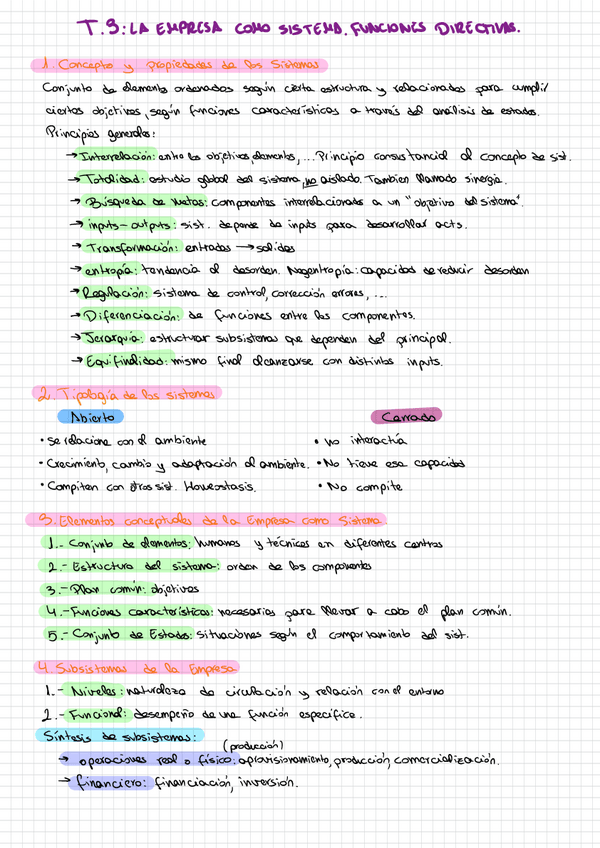 T.3: LA EMPRESA COMO SISTEMA. FUNCIONES DIRECTIVAS.
1. Concepto y propiedades de los Sistemas
Conjunto de elementos ordenados según cierta estructura y relacionados para cumplir
ciertos objetivos, según funciones características a través del análisis de estados.
Principios generales:
→ Interrelación: entre los objetivos, elementos, ... Principio consustancial al concepto de sist.
→ Totalidad: estudio global del sistema, no aislado. Tambien llamado sinergia.
→ Búsqueda de metas: componentes interrelacionados a un "objetivo del sistema".
→ inputs-outputs: sist. depende de inputs para desarrollar acts.
→ Transformación: entradas → salidas
→ entropía: tendencia al desorden. Negentropía: capacidad de reducir desorden
→ Regulación: sistema de control, corrección errores, ...
→ Diferenciación: de funciones entre los componentes.
→ Jerarquía: estructurar subsistemas que dependen del principal.
→ Equifinalidad: mismo final alcanzarse con distintos inputs.
2. Tipología de los sistemas
Abierto Cerrado
• Se relacione con el ambiente • no interactúa
• Crecimiento, cambio y adaptación al ambiente. • No tiene esa capacidad
• Compiten con otros sist. Homeostasis. • No compite
3. Elementos conceptuales de la Empresa como Sistema
1.- Conjunto de elementos: humanos y técnicos en diferentes centros
2.- Estructura del sistema: orden de los componentes
3.- Plan común: objetivos
4.- Funciones características: necesarias para llevar a cabo el plan común.
5.- Conjunto de Estados: situaciones según el comportamiento del sist.
4. Subsistemas de la Empresa
1.- Niveles: naturaleza de circulación y relación con el entorno
2.- Funcional: desempeño de una función específica.
Síntesis de subsistemas:
(producción)
→ operaciones real o físico: aprovisionamiento, producción, comercialización.
→ financiero: financiación, inversión.